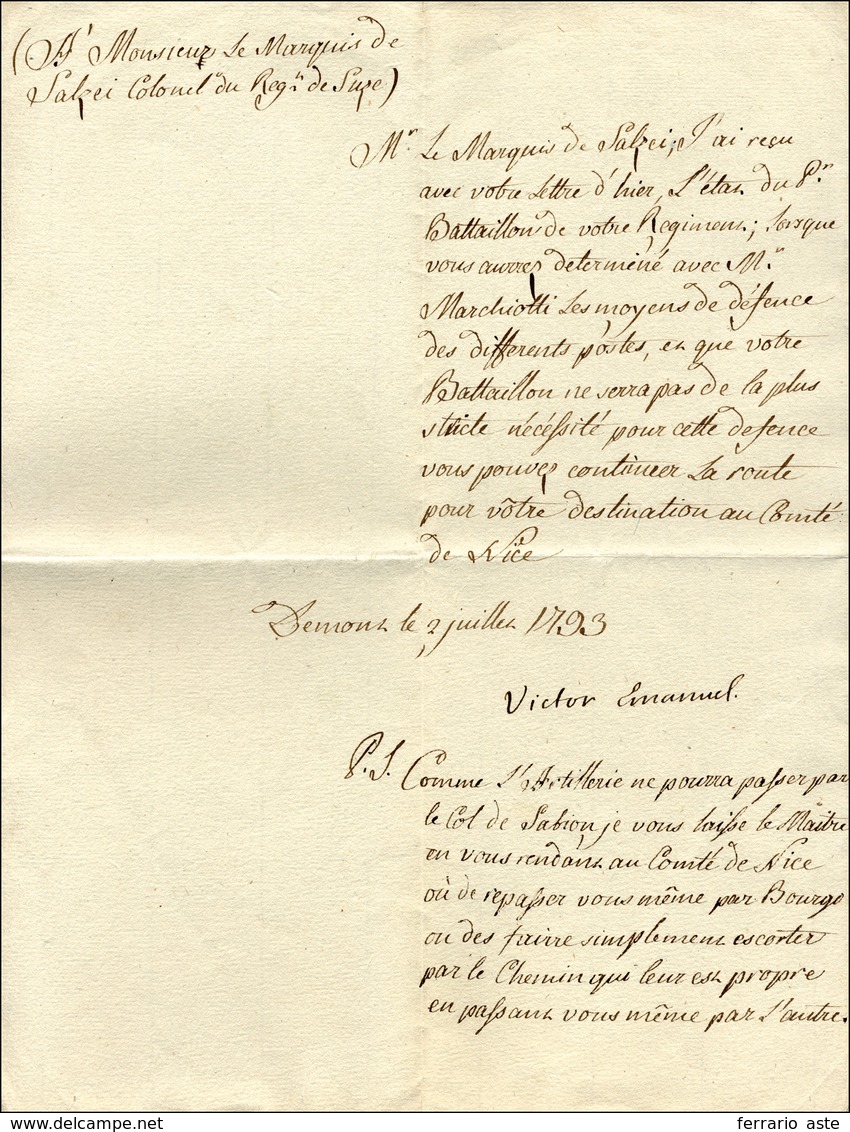 (A' Monsieur Le Marquis de
Salzei Colonel du Reg.t de Suze)
M.r Le Marquis de Salzei; J'ai reçu
avec votre Lettre d'hier, L'état du P.r
Battaillon de votre Regiment; lorsque
vous aurez determiné avec M.r
Marchiotti Les moyens de défence
des differents postes, et que votre
Battaillon ne serra pas de la plus
stricte nécéssité pour cette defence
vous pouvez continuer La route
pour vôtre destination au Comté
de Nice
Demont le 2 juillet 1793
Victor Emanuel.
P.S. Comme L'Artillerie ne pourra passer par
le Col de Sabion je vous laisse le Maitre
en vous rendant au Comté de Nice
où de repasser vous même par Bourgo
ou des fairre simplement escorter
par le Chemin qui leur est propre
en passant vous même par L'autre.
ferrario aste